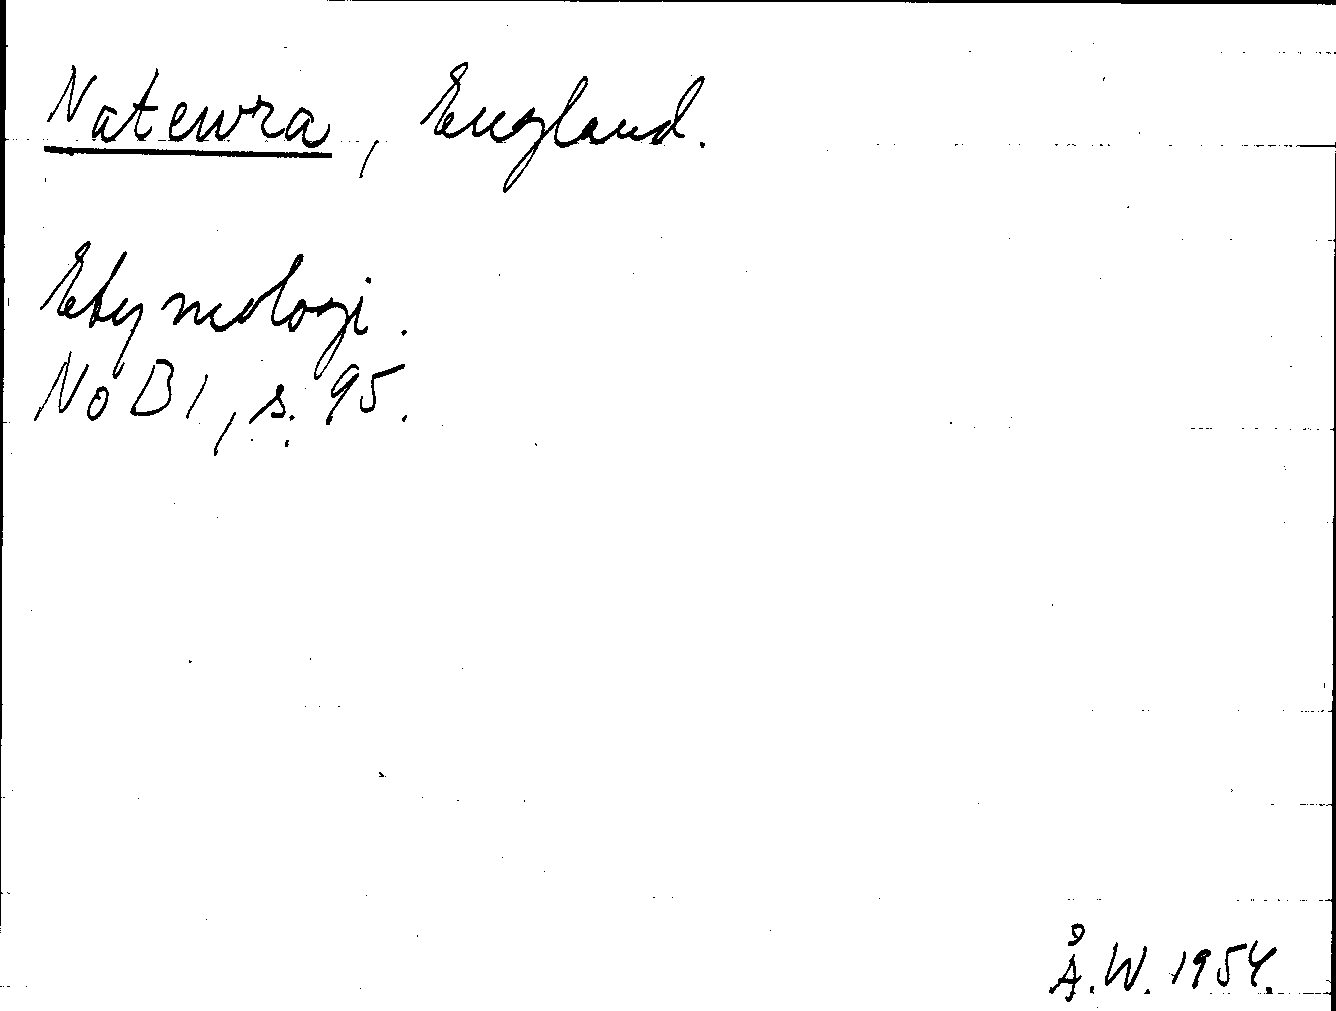 Natewra, England.
Etymologi.
NoB 1, s. 95.
Å.W. 1954.